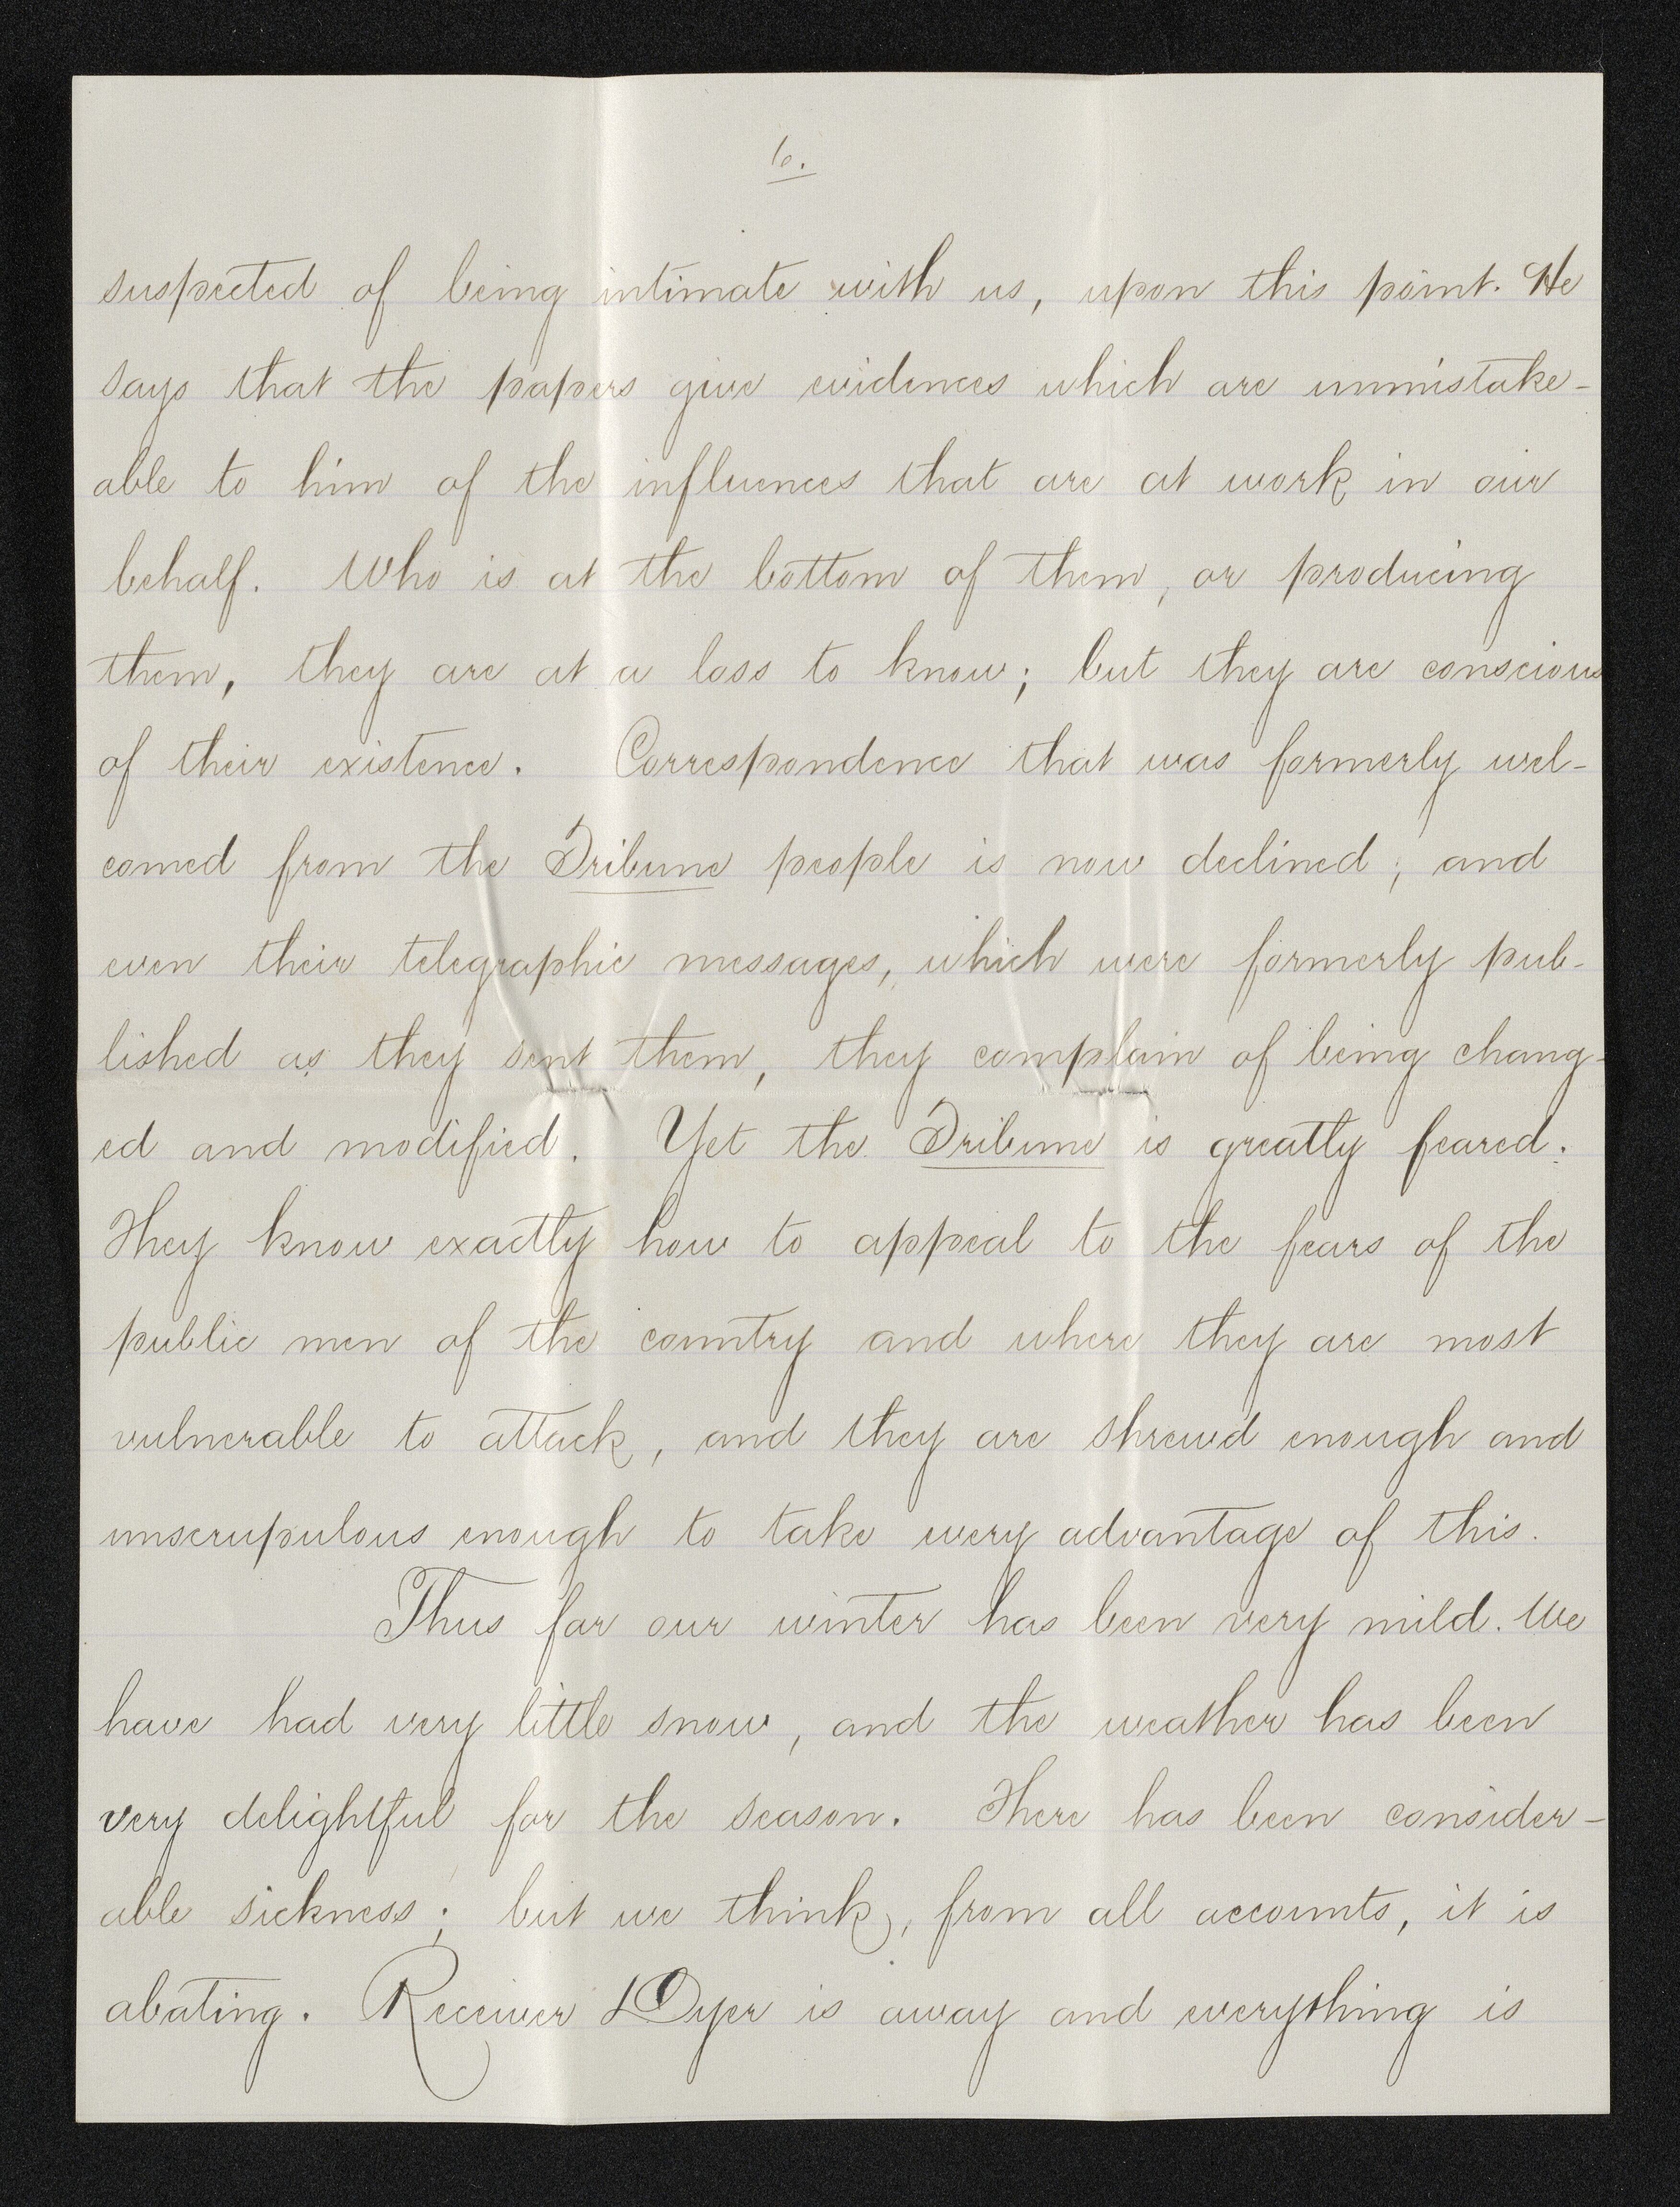 6.
suspected of being intimate with us, upon this point. He
says that the papers give evidences which are unmistake-
able to him of the influences that are at work in our
behalf. Who is at the bottom of them, or producing
them, they are at a loss to know; but they are conscious
of their existence. Correspondence that was formerly wel-
comed from the Tribune people is now declined; and
even their telegraphic messages, which were formerly pub-
lished as they sent them, they complain of being chang-
ed and modified. Yet the Tribune is greatly feared.
They know exactly how to appeal to the fears of the
public men of the country and where they are most
vulnerable to attack, and they are shrewd enough and
unscrupulous enough to take every advantage of this.
Thus far our winter has been very mild. We
have had very little snow, and the weather has been
very delightful for the season. There has been consider-
able sickness; but we think, from all accounts, it is
abating. Receiver Dyer is away and everything is